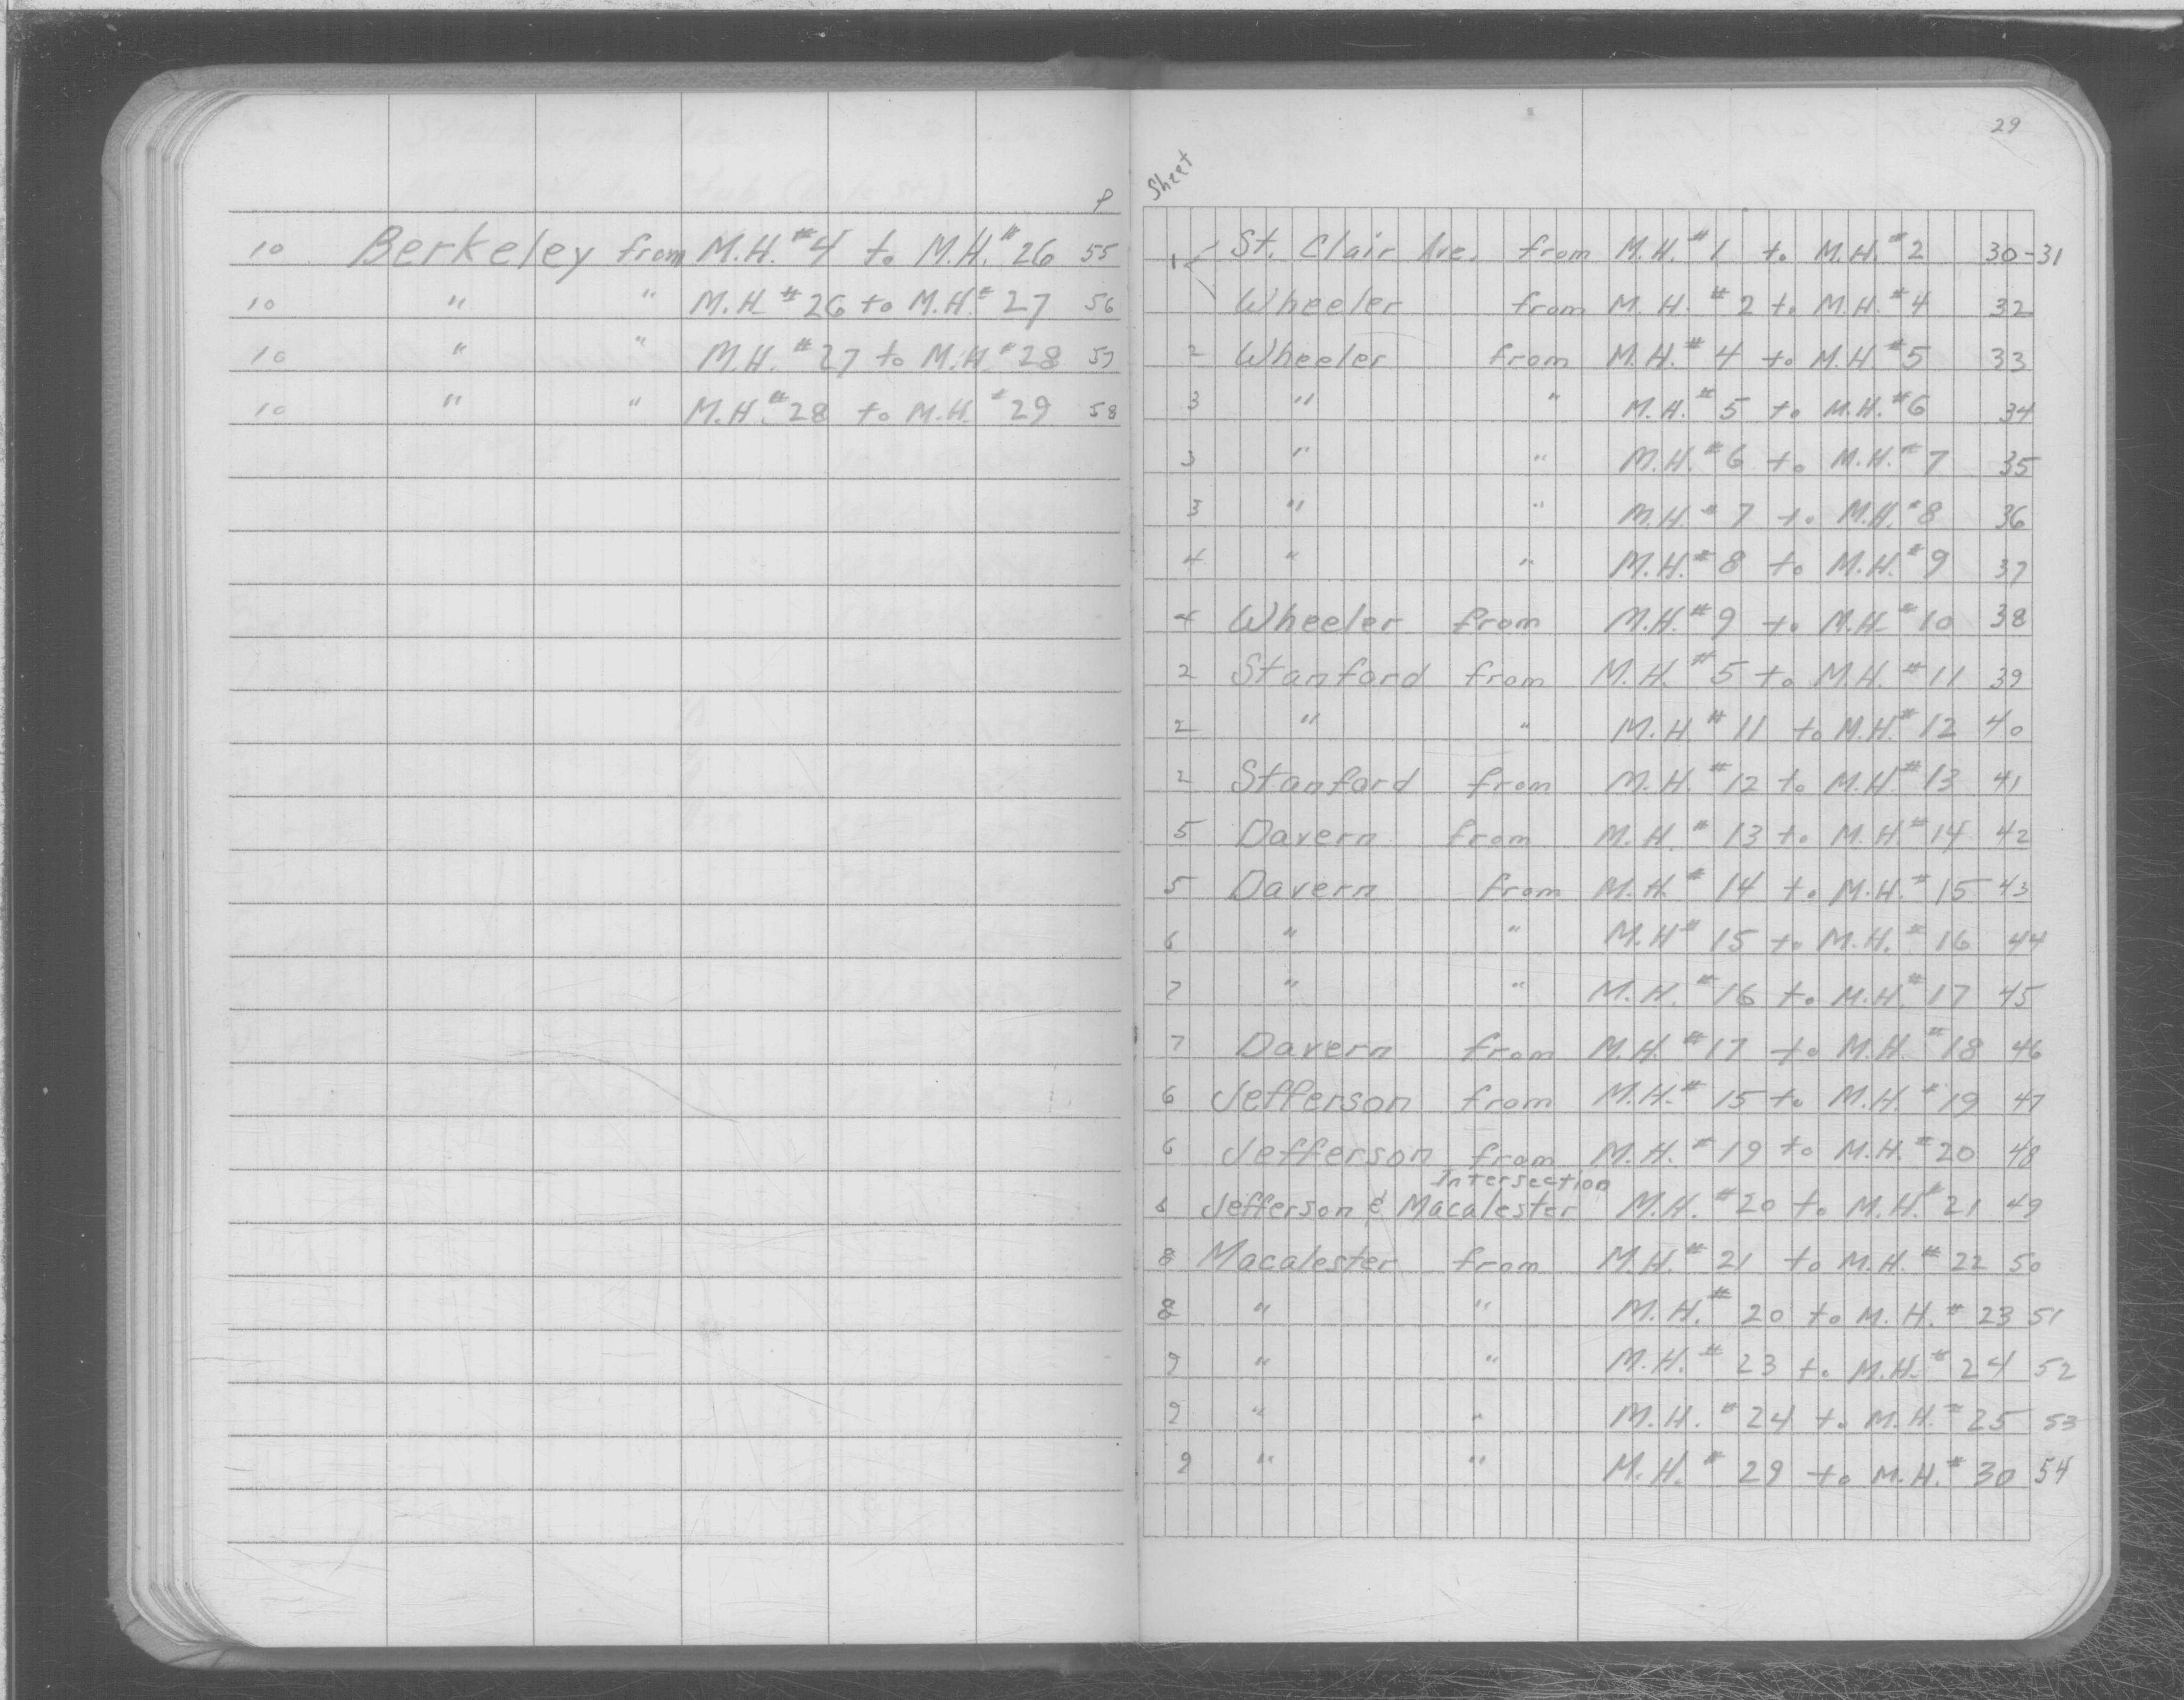 P
10 Berkeley from M.H. #4 to M.H. #26 55
10 " " M.H. #26 to M.H. #27 56
10 " " M.H. #27 to M.H. #28 57
10 " " M.H. #28 to M.H. #29 58
29
Sheet
1 St. Clair Ave. from M.H. #1 to M.H. #2 30-31
Wheeler from M.H. #2 to M.H. #4 32
2 Wheeler from M.H. #4 to M.H. #5 33
3 " " M.H. #5 to M.H. #6 34
3 " " M.H. #6 to M.H. #7 35
3 " " M.H. #7 to M.H. #8 36
4 " " M.H. #8 to M.H. #9 37
4 Wheeler from M.H. #9 to M.H. #10 38
2 Stanford from M.H. #5 to M.H. #11 39
2 " " M.H. #11 to M.H. #12 40
2 Stanford from M.H. #12 to M.H. #13 41
5 Davern from M.H. #13 to M.H. #14 42
5 Davern from M.H. #14 to M.H. #15 43
6 " " M.H #15 to M.H. #16 44
7 " " M.H. #16 to M.H. #17 45
7 Davern from M.H. #17 to M.H. #18 46
6 Jefferson from M.H. #15 to M.H. #19 47
6 Jefferson from M.H. #19 to M.H. #20 48
Intersection
6 Jefferson & Macalester M.H. #20 to M.H. #21 49
8 Macalester from M.H. #21 to M.H. #22 50
8 " " M.H. #20 to M.H. #23 51
9 " " M.H. #23 to M.H. #24 52
9 " " M.H. #24 to M.H. #25 53
9 " " M.H. #29 to M.H. #30 54